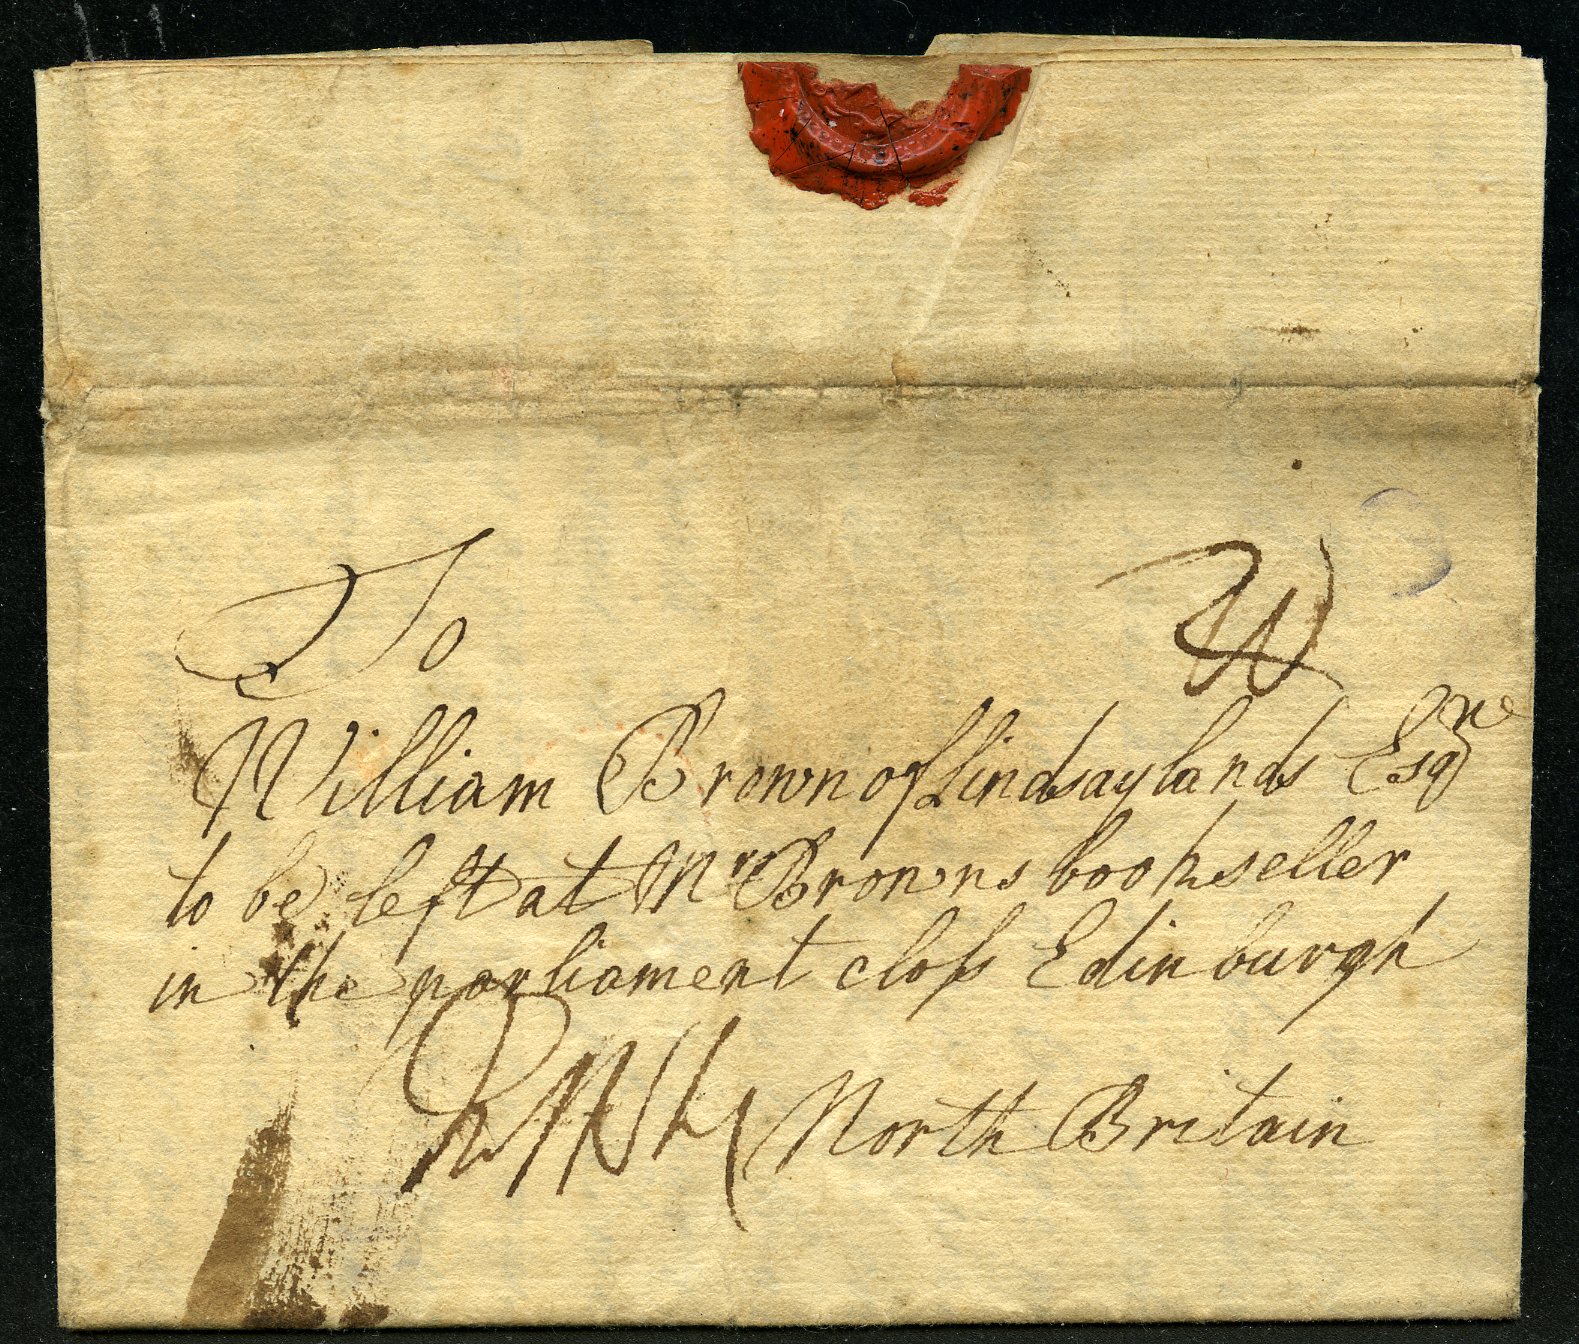 To
William Brown of Lindsaylands Esqre
to be left at Mr Browns bookseller
in the parliament closs Edinburgh
North Britain